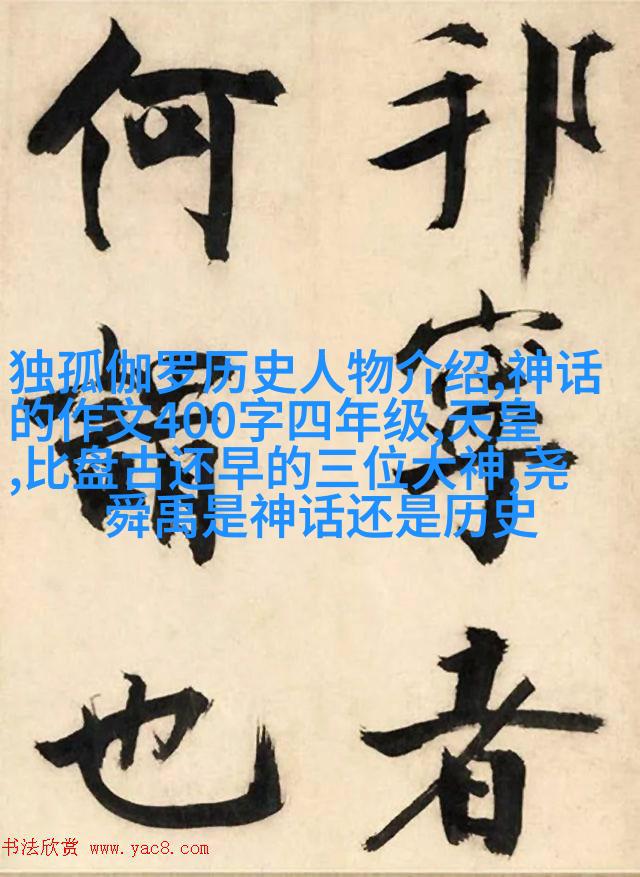 邦寧者
何謂也
独孤伽罗历史人物介绍,神话
的作文400字四年级,天皇
,比盘古还早的三位大神,尧
舜禹是神话还是历史
书法欣赏 www.yac8.com